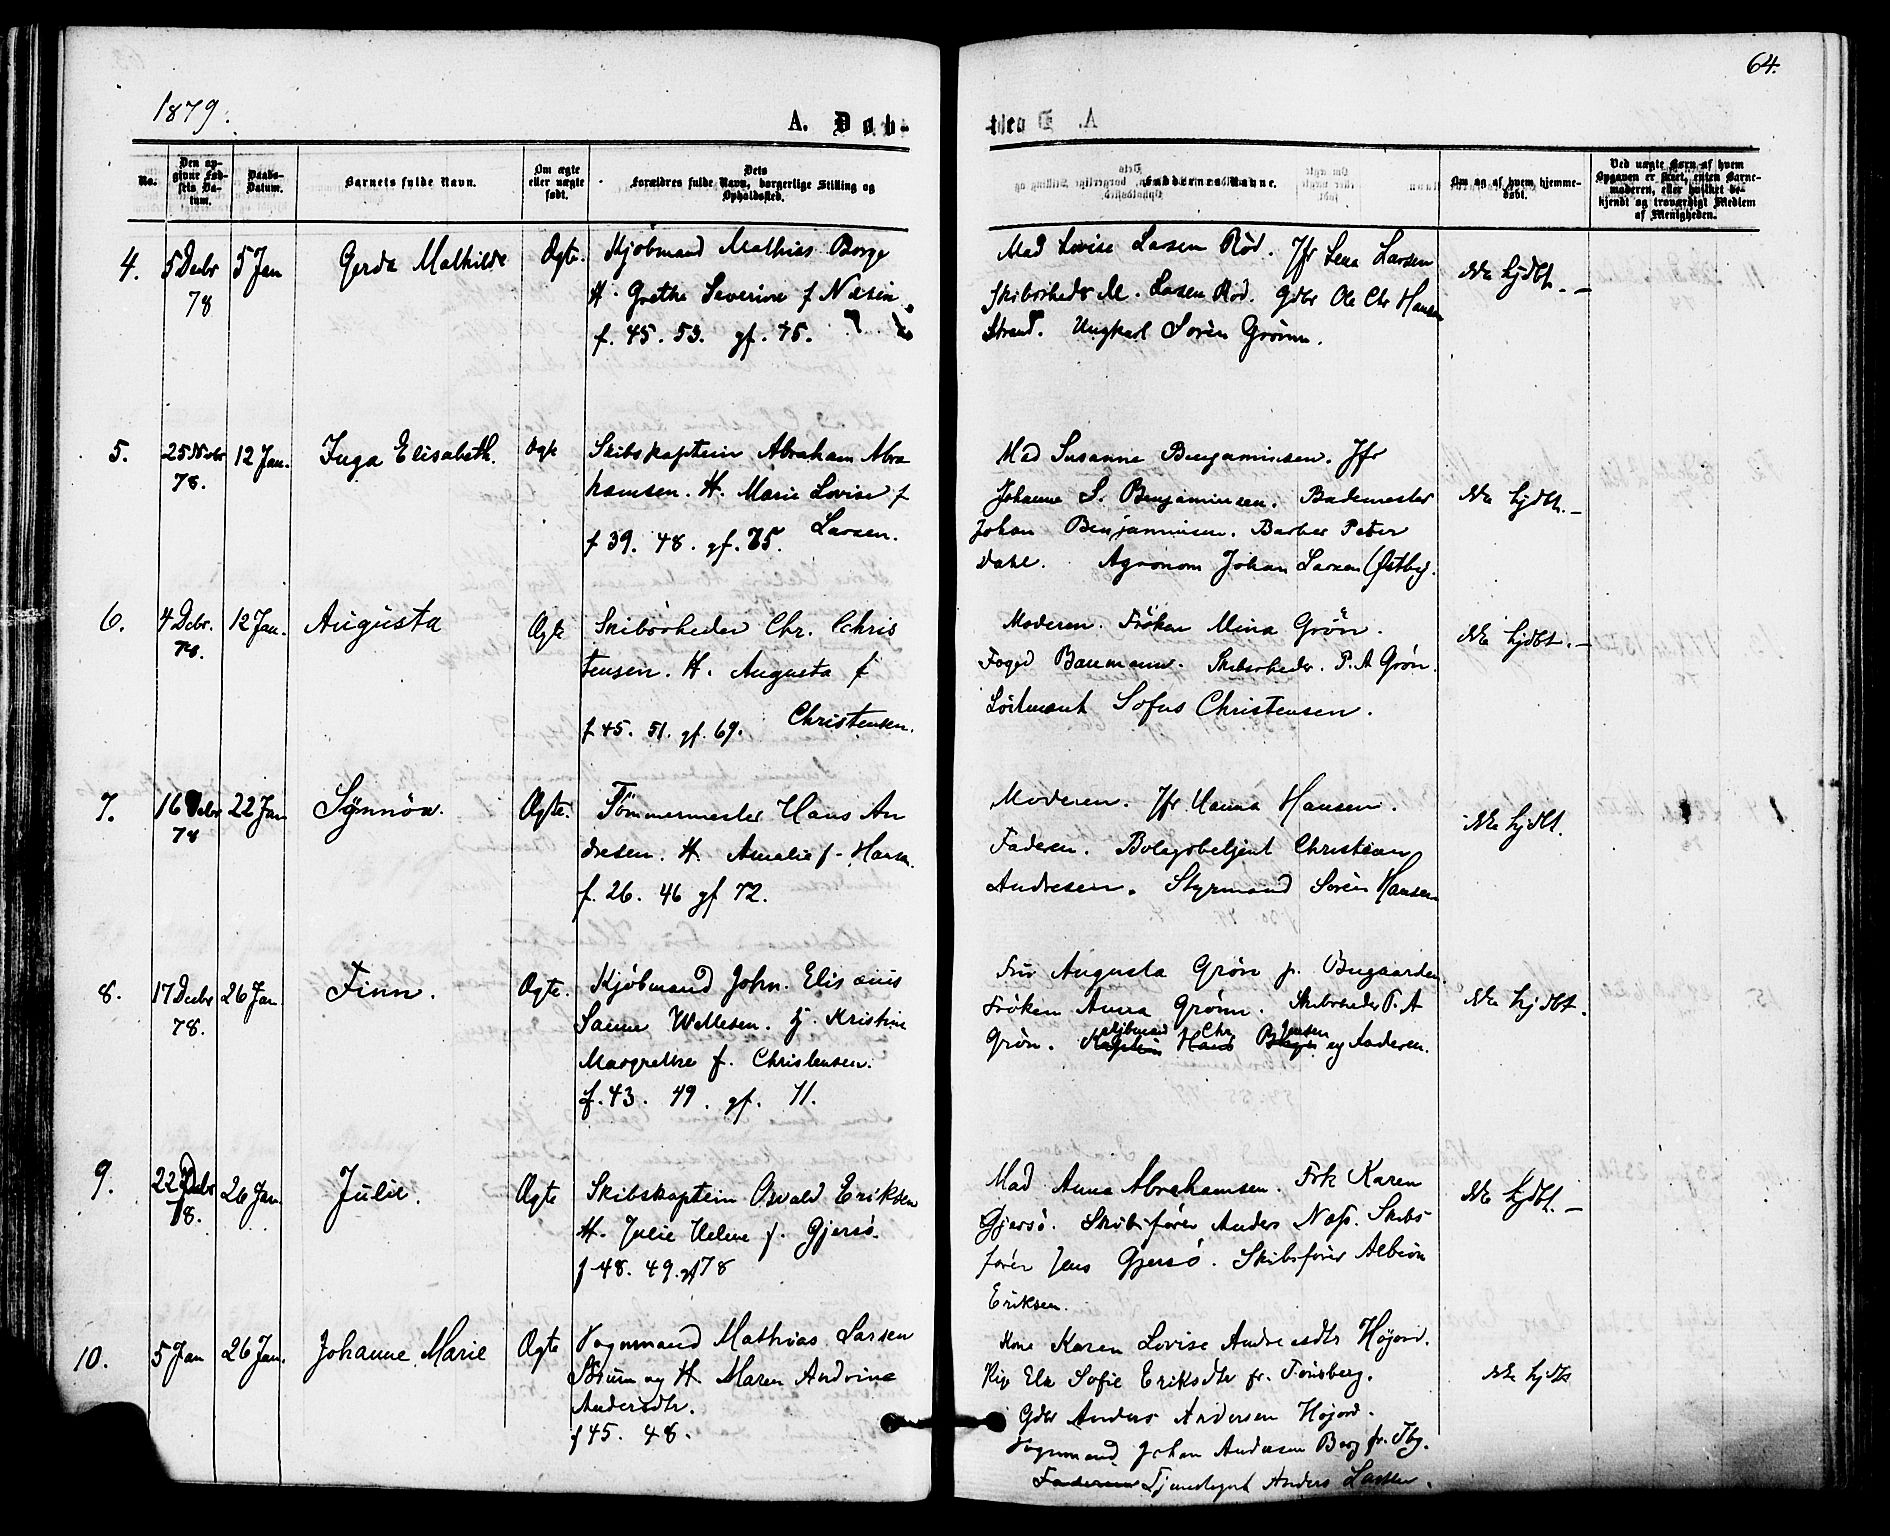 1879.
A. Døb-
No.
Den op-
givne Fød-
sels Da-
tum.
Daabs-
Datum.
Barnets fulde Navn.
Om ægte
eller uægte
født.
Dets
Forældres fulde Navn, borgerlige Stilling og
Opholdssted.
4. 5 Decbr 5 Jan Gerda Mathilde Ægte. Kjøbmand Mathias Borge
78 H. Grethe Severine f Næsen
f. 45. 53. gf. 75.
5. 25 Novbr 12 Jan. Inga Elisabeth. Ægte Skibskaptein Abraham Abra
78. hamsen. H. Marie Lovise f
f 39. 48. gf. 75. Larsen.
6. 4 Debr. 12 Jan. Augusta Ægte Skibsrheder Chr. Chris
78. tensen. H. Augusta f
f 45. 51. gf. 69. Christensen.
7. 16 Decbr 22 Jan Synnöva. Ægte. Tømmermester Hans An
78 dresen. H. Amalie f. Hansen
f. 26. 46 gf 72.
8. 17 Decbr 26 Jan. Finn. Ægte. Kjøbmand John. Elisæus
78. Sanne Willesen. H. Kristine
Margrethe f. Christensen.
f. 43. 49. gf. 71.
9. 22 Decbr 26 Jan Julie. Ægte Skibskaptein Osvald Eriksen
78. H. Julie Helene f. Gjersø.
f 48. 49. gf 78
10. 5 Jan 26 Jan. Johanne Marie Ægte Vognmand Mathias Larsen
og H. Maren Andrine
Andersdtr.
f 45. 48.
64.
Faddernes Navne.
Om og af hvem hjemme-
døbt.
Ved uægte Børn af hvem
Opgaven er skeet, enten Barne-
moderen, eller hvilket be-
kjendt og troværdigt Medlem
af Menigheden.
Mad Lovise Larsen Rød. Jfr Lena Larsen Ikke hjdbt. –
Skibsrheder M. Larsen Rød. Gdbr Ole Chr Hansen
Strand. Ungkarl Sören Grönn.
Mad Susanne Benjaminsen. Jfr
Johanne S. Benjaminsen. Bademester Ikke hjdbt. –
Johan Benjaminsen. Barber Peter
Dahl. Agronom Johan Larsen (Østby).
Moderen. Frøken Mina Grøn. Ikke hjdbt. –
Foged Baumann. Skibsrheder. P. A Grøn.
Löitenant Sofus Christensen.
Moderen. Jfr Hanna Hansen. Ikke hjdbt.
Faderen. Bolagsbetjent Christian
Andresen. Styrmand Sören Hansen
Fru Augusta Grön fr. Bugaarden
Frøken Anna Grönn. Skibsrheder P. A Ikke hjdbt.
Grøn. Kjøbmand Chr. Jensen og Faderen.
Mad Anna Abrahamsen. Frk Karen Ikke hjdbt. –
Gjersø. Skibsfører Anders Næss. Skibs-
fører Jens Gjersø. Skibsfører Albion
Eriksen.
Kone Karen Lovise Andreasdtr Højord.
Pige Else Sofie Eriksdtr fr. Tönsberg. Ikke hjdbt
Gdbr Anders Andersen Højord.
Vognmand Johan Andersen Berg fr. Tbg.
Faderen Tjenestegut Anders Larsen.